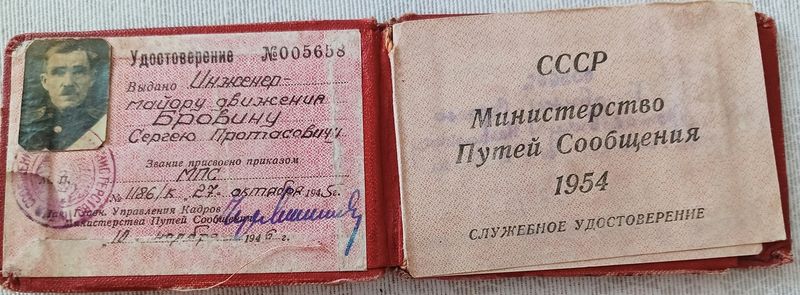 Удостоверение №005658
Выдано Инженер-
майору движения
Бровину
Сергею Протасовичу
Звание присвоено приказом
МПС
№1186/к "27" октября 1945г.
Управления Кадров
Министерства Путей Сообщения
"10" ноября 1946 г.
М. П.
СССР
Министерство
Путей Сообщения
1954
СЛУЖЕБНОЕ УДОСТОВЕРЕНИЕ